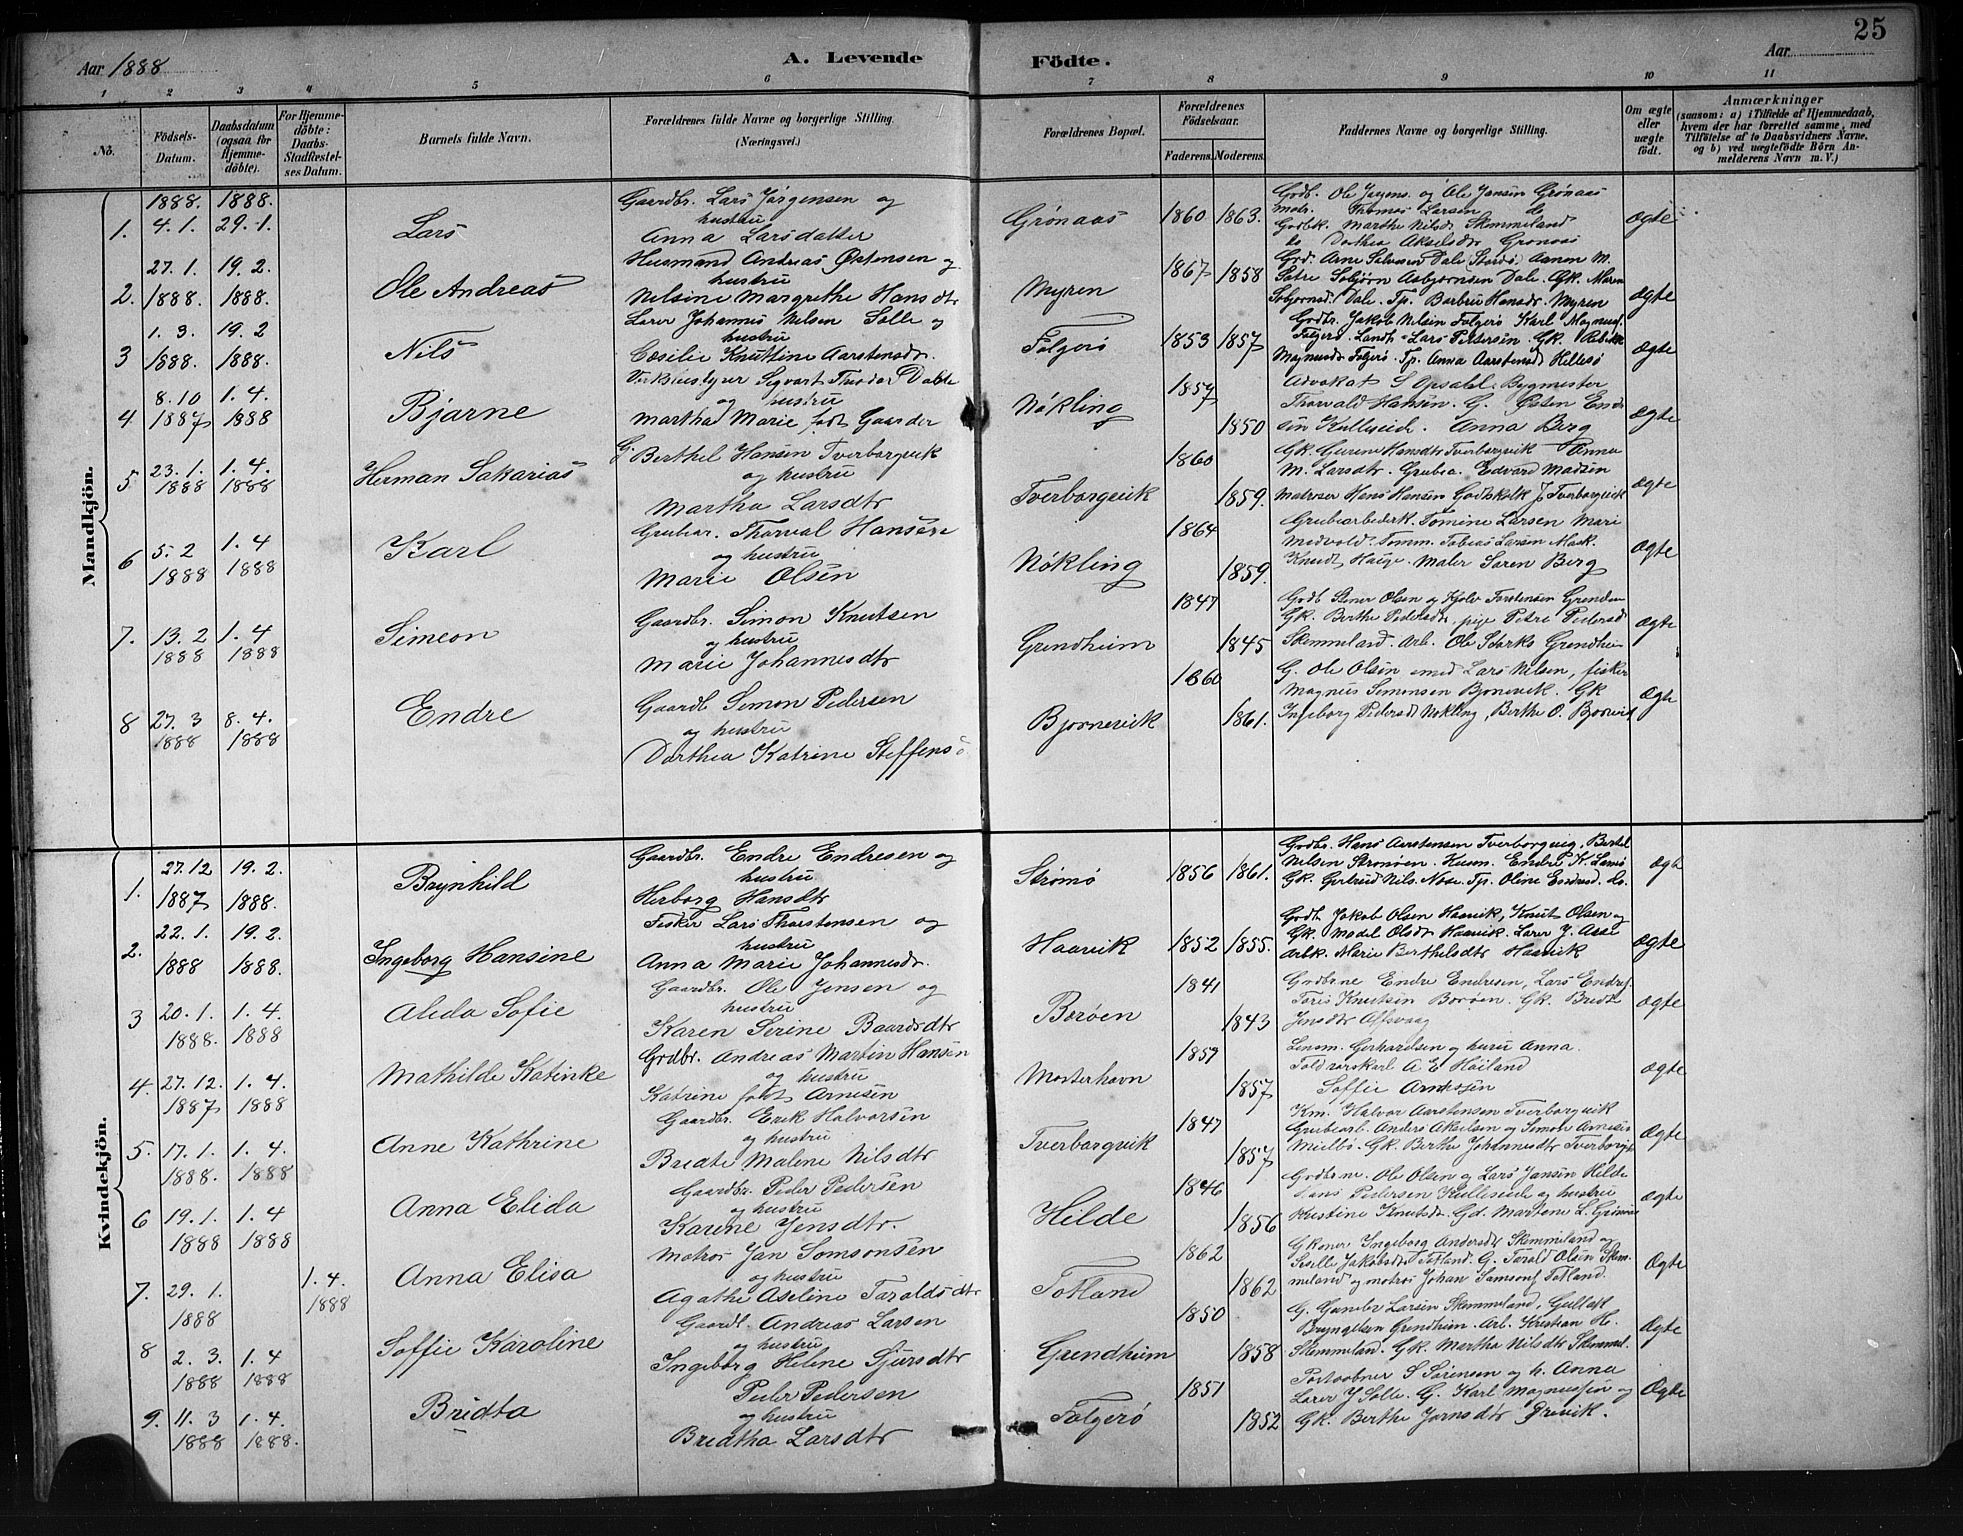 25
Aar 1888
A. Levende
Födte.
Aar
1 2 3 4 5 6 7 8 9 10 11
No.
Födsels-Datum.
Daabsdatum (ogsaa for Hjemme-döbte).
For Hjemme-döbte: Daabs-Stadfestel-ses Datum.
Barnets fulde Navn.
Forældrenes fulde Navne og borgerlige Stilling.
(Næringsvei.)
Forældrenes Bopæl.
Forældrenes Födselsaar.
Faderens. Moderens.
Faddernes Navne og borgerlige Stilling.
Om ægte eller uægte födt.
Anmærkninger
(saasom: a) i Tilfælde af Hjemmedaab,
hvem der har forrettet samme, med
Tilföielse af to Daabsvidners Navne,
og b) ved uægtefödte Börn An-
melderens Navn m. V.)
Mandkjön.
1. 1888. 4.1. 1888. 29.1. Lars
Gaardbr. Lars Jörgensen og
hustru
Anna Larsdatter
Grönaas 1860 1863.
Ole Jansen Grönaas
Thomas Larsen do
Godbk. Marthe Nilsdr Skemmeland
do Dorthea Akselsdr Grönaas
Ægte
2. 27.1. 1888. 19.2. 1888. Ole Andreas
Husmand Andreas Östensen og
hustru
Nilsine Margrethe Hansdtr
Myren 1867 1858
Arne Salvesen Dale
Asbjörnsen Dale. Gk. Maren
Dale. Tp. Barbru Hansdr. Myren
Ægte
3 1.3. 1888. 19.2 1888. Nils
Lærer Johannes Nilsen Solle og
hustru
Cæsilie Knuttine Aarstensdr.
Folgerö 1853 1857
Godbr. Jakob Nilsen Folgerö Karl Magnus.
Folgerö. Landh. Lars Petersen. Gk.
Magnusdr Folgerö. Tp. Anna Aarstensdr Hillesö
Ægte
4 8.10 1887 1.4. 1888 Bjarne
Sigvart Theodor Dahle
og hustru
Martha Marie födt Gaarder
Nökling 1857 1850
Advokat S Opsahl. Bygmester
Thorvald Hansen. G. Østen End-
sen Kulleseid. Anna Berg
Ægte
5 23.1. 1888 1.4. 1888 Herman Sakarias
G. Berthel Hansen Tverborgvik
og hustru
Martha Larsdtr
Tverborgvik 1860 1859.
Gk. Hansdtr Tverborgvik Anna
M. Larsdtr. Grubea. Edvard Madsen
Matroser Hans Hansen Tverborgvik
Ægte
6 5.2 1888 1.4 1888 Karl
Grubear. Thorval Hansen
og hustru
Marie Olsen
Nökling 1864 1859.
Grubearbeiderk. Tomine Larsen Mari
Medvold. Tömm. Tobias Larsen Mask.
Knudt Hauge. Maler Sören Berg
Ægte
7. 13.2 1888 1.4. 1888 Simeon
Gaardbr. Simon Knutsen
og hustru
Marie Johannesdtr
Grendheim 1847 1845
Godb Stener Olsen og Torstensen
Gk. Berthe Pedersdr, pige Petre Pedersd
Skemmeland. Arb. Ole Storks Grendheim
Ægte
8 27.3 1888 8.4. 1888 Endre
Gaardb Simon Pedersen
og hustru
Dorthea Katrine Steffens
Bjornevik 1860 1861.
G. Ole Olsen Lars Nilsen, fisker
Magnus Simonsen Bjonevik. Gk
Ingeborg Pedersd Nökling, Berthe O. Bjonevik
Ægte
Kvindekjön.
1. 27.12 1887 19.2. 1888. Brynhild
Gaardbr. Endre Endresen og
hustru
Herborg Hansdtr
Strömö 1856 1861.
Godbr. Hans Aarstensen Tverborgvig, Bertel
Nilsen Strömöen.
Gk. Gertrud Nils. Tp. Oline Endresd. do.
Ægte
2. 22.1. 1888 19.2. 1888. Ingeborg Hansine
Fisker Lars Thorstensen og
hustru
Anna Marie Johannesdr.
Haavik 1852 1855.
Godb. Jakob Olsen Haavik, Knut Olsen og
Gk. Madel Olsdr Haavik. Lærer J. Aase
Arbk. Marie Berthelsdtr Haavik
Ægte
3 20.1. 1888. 1.4. 1888 Alida Sofie
Gaardbr. Ole Jensen og
hustru
Karen Serine Baardsdtr
Boröen 1841 1843
Godbrne Endre Endresen, Lars Endres.
Knutsen Boröen. Gk. Brida
Jensdtr Alfsvaag
Ægte
4. 27.12. 1887 1.4. 1888 Mathilde Katinke
Grdbr. Andreas Martin Hansen
og hustru
Katrine födt Arnesen
Mosterhavn 1857 1857
Lensm. Gerhardsen og Anna.
A E Höiland
Soffie Arnesen
Ægte
5. 17.1. 1888. 1.4. 1888 Anne Kathrine
Gaardbr. Erik Halvorsen
og hustru
Bredte Malene Nilsdtr
Tverborgvik 1847 1857
Km. Halvor Aarstensen Tverborgvik
Grubearb. Anders Akselsen og Simon Arnesen
Gk. Berthe Johannesdtr Tverborgvk
Ægte
6 19.1. 1888 1.4 1888 Anna Elida
Gaardbr. Peder Pedersen
og hustru
Karine Jensdtr.
Hilde 1846 1856
Godbrne. Ole Olsen og Lars Jansen Hilde
Hans Pedersen Kulleseide og hustru
Kristine Knutsdr. Gd. Martene L. Grönaas
Ægte
7. 29.1. 1888 1.4. 1888 Anna Elisa
Matros Jan Somsonsen
og hustru
Agathe Aseline Taroldsdtr
Totland 1862 1862
Gkoner Ingeborg Andersdtr Skemmeland og
Siselle Jakobsdtr Totland. G. Tarald Olsen Skem-
meland og matros Johan Samsons Totland.
Ægte
8 2.3. 1888 1.4 1888 Soffie Karoline
Gaardb. Andreas Larsen
og hustru
Ingeborg Helene Sjursdtr
Grendheim 1850 1858
G. Gunder Larsen Skemmeland, Gullak
Bryngelsen Grendheim. Arb. Kristian H.
Skemmeland. Gk. Martha Nilsdtr Skemmel.
Ægte
9. 11.3 1888 1.4. 1888. Bridta
Peder Pedersen
og hustru
Bredtha Larsdtr
Folgerö 1851 1852
Postaabner S Sörensen og h. Anna
Lærer J Solle. G. Karl Magnussen og
Gk. Berthe Jornsdtr Grevik.
Ægte